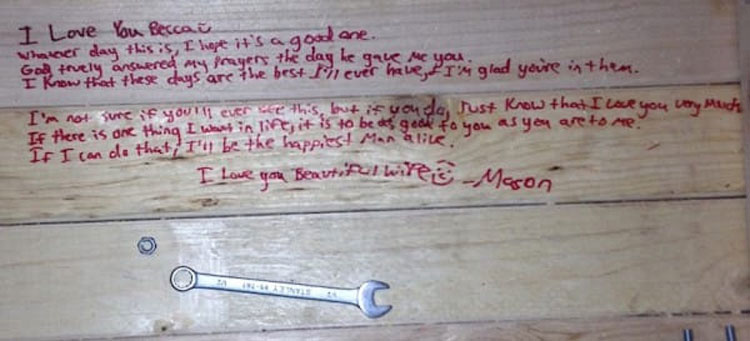 I Love You Becca
Whatever day this is, I hope it's a good one.
God truely answered my prayers the day he gave me you.
I know that these days are the best I'll ever have, & I'm glad you're in them.
I'm not sure if you'll ever see this, but if you do, Just know that I Love you very Much.
If there is one thing I want in life, it is to be as good to you as you are to me.
If I can do that, I'll be the happiest Man alive.
I Love you Beautiful wife -Mason
STANLEY 1/2